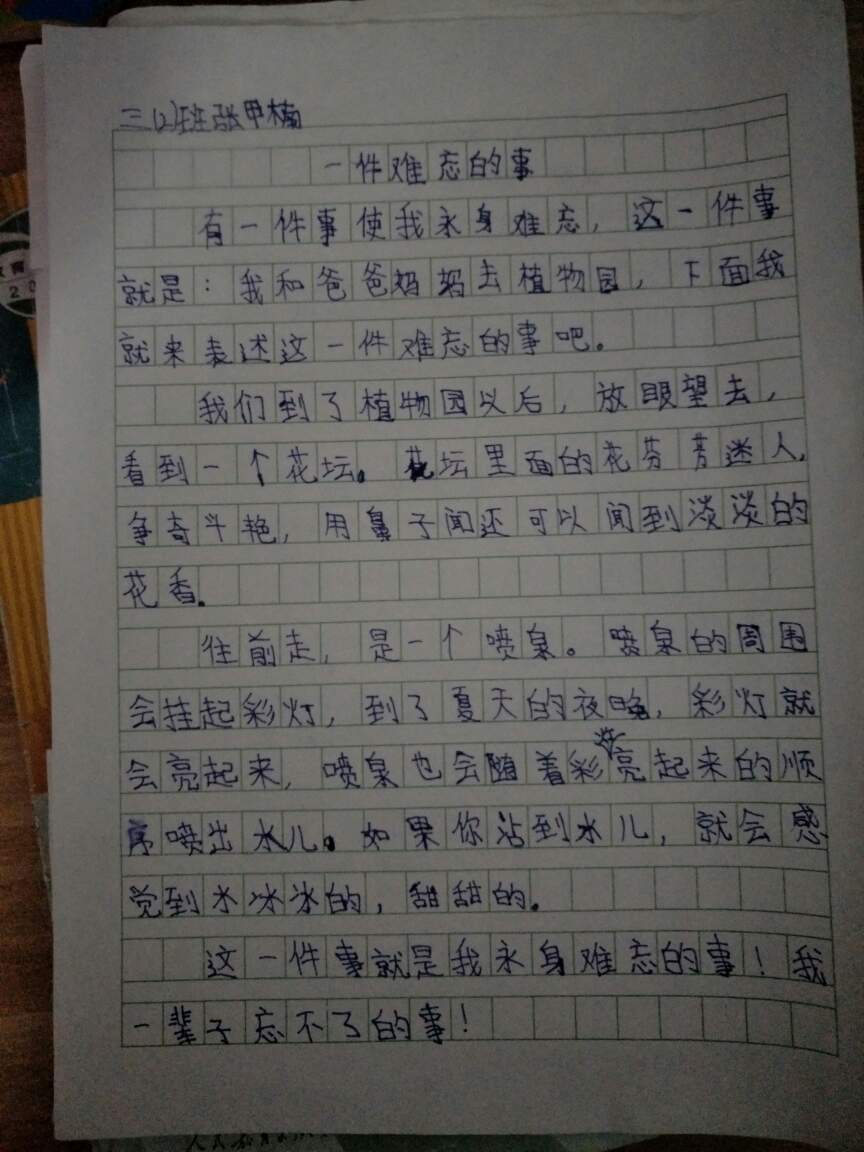 三(2)班张甲楠
一件难忘的事
有一件事使我永身难忘，这一件事
就是：我和爸爸妈妈去植物园，下面我
就来表述这一件难忘的事吧。
我们到了植物园以后，放眼望去，
看到一个花坛。花坛里面的花芬芳迷人，
争奇斗艳，用鼻子闻还可以闻到淡淡的
花香。
往前走，是一个喷泉。喷泉的周围
会挂起彩灯，到了夏天的夜晚，彩灯就
会亮起来，喷泉也会随着彩亮起来的顺
序喷出水儿。如果你沾到水儿，就会感
觉到水冰冰的，甜甜的。
这一件事就是我永身难忘的事！我
一辈子忘不了的事！
20